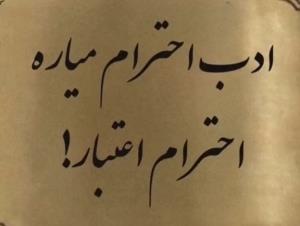 ادب احترام میاره
احترام اعتبار!